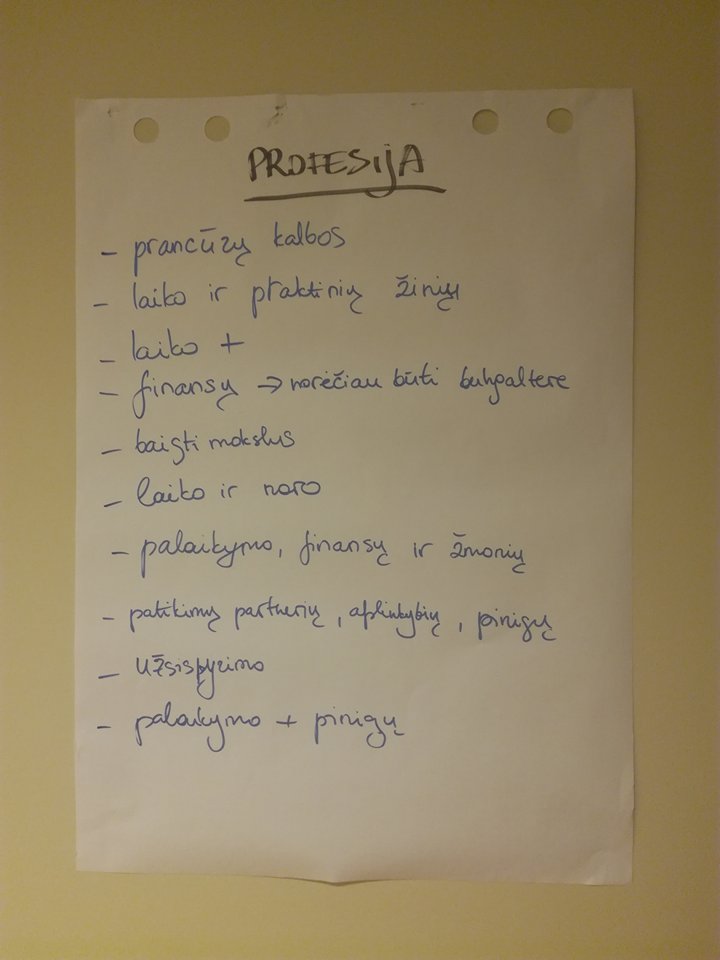 PROFESIJA
- prancūzų kalbos
- laiko ir praktinių žinių
- laiko +
- finansų → norėčiau būti buhgaltere
- baigti mokslus
- laiko ir noro
- palaikymo, finansų ir žmonių
- patikimų partnerių, aplinkybių, pinigų
- užsispyrimo
- palaikymo + pinigų